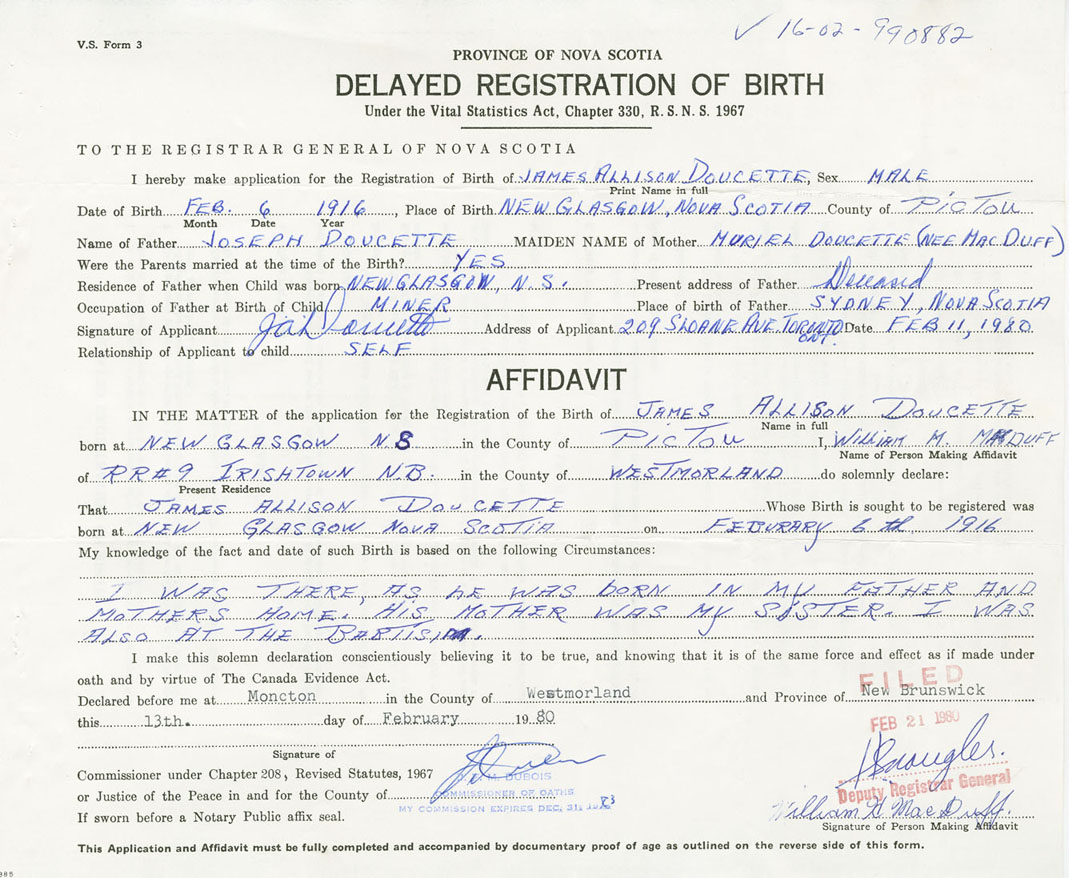 V.S. Form 3
✓ 16-02-990882
PROVINCE OF NOVA SCOTIA
DELAYED REGISTRATION OF BIRTH
Under the Vital Statistics Act, Chapter 330, R.S.N.S. 1967
TO THE REGISTRAR GENERAL OF NOVA SCOTIA
I hereby make application for the Registration of Birth of JAMES ALLISON DOUCETTE, Sex MALE
Print Name in full
Date of Birth FEB. 6 1916, Place of Birth NEW GLASGOW, NOVA SCOTIA County of PICTOU
Month Date Year
Name of Father JOSEPH DOUCETTE MAIDEN NAME of Mother MURIEL DOUCETTE (NEE MAC DUFF)
Were the Parents married at the time of the Birth? YES
Residence of Father when Child was born NEW GLASGOW, N.S. Present address of Father Deceased
Occupation of Father at Birth of Child MINER Place of birth of Father SYDNEY, NOVA SCOTIA
Signature of Applicant Address of Applicant 209 SLOANE AVE. TORONTO ONT. Date FEB 11, 1980
Relationship of Applicant to child SELF
AFFIDAVIT
IN THE MATTER of the application for the Registration of the Birth of JAMES ALLISON DOUCETTE
Name in full
born at NEW GLASGOW N S in the County of PICTOU I, WILLIAM M. MACDUFF
Name of Person Making Affidavit
of RR#9 IRISHTOWN N.B. in the County of WESTMORLAND do solemnly declare:
Present Residence
That JAMES ALLISON DOUCETTE Whose Birth is sought to be registered was
born at NEW GLASGOW NOVA SCOTIA on FEBURARY 6th, 1916
My knowledge of the fact and date of such Birth is based on the following Circumstances:
I WAS THERE, AS HE WAS BORN IN MY FATHER AND
MOTHERS HOME. HIS MOTHER WAS MY SISTER. I WAS
ALSO AT THE BAPTISM.
I make this solemn declaration conscientiously believing it to be true, and knowing that it is of the same force and effect as if made under
oath and by virtue of The Canada Evidence Act.
Declared before me at Moncton in the County of Westmorland and Province of New Brunswick
FILED
this 13th. day of February 1980
FEB 21 1980
Signature of
Commissioner under Chapter 208, Revised Statutes, 1967
M. DUBOIS
or Justice of the Peace in and for the County of
COMMISSIONER OF OATHS
Deputy Registrar General
MY COMMISSION EXPIRES DEC. 31, 1983
If sworn before a Notary Public affix seal.
William MacDuff.
Signature of Person Making Affidavit
This Application and Affidavit must be fully completed and accompanied by documentary proof of age as outlined on the reverse side of this form.